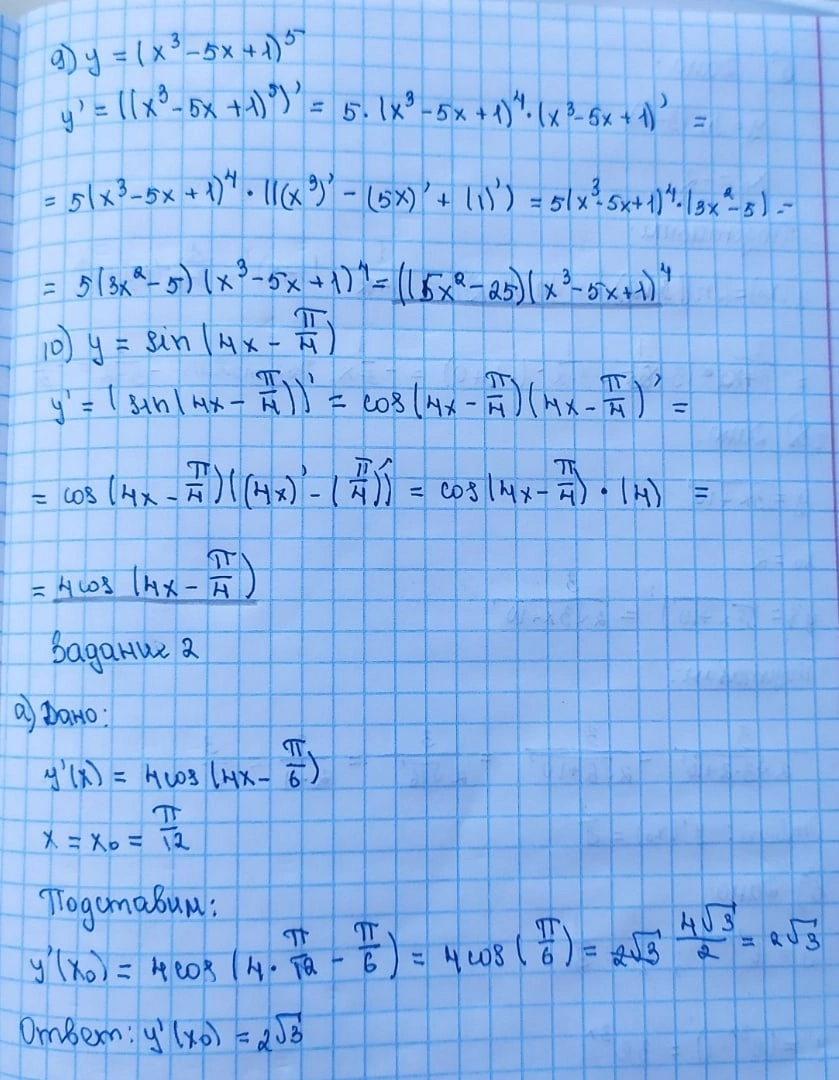 9) y = (x³ - 5x + 1)⁵
y' = ((x³ - 5x + 1)⁵)' = 5 · (x³ - 5x + 1)⁴ · (x³ - 5x + 1)' =
= 5(x³ - 5x + 1)⁴ · ((x³)' - (5x)' + (1)') = 5(x³ - 5x + 1)⁴ · (3x² - 5) =
= 5(3x² - 5)(x³ - 5x + 1)⁴ = (15x² - 25)(x³ - 5x + 1)⁴
10) y = sin(4x - π/4)
y' = (sin(4x - π/4))' = cos(4x - π/4)(4x - π/4)' =
= cos(4x - π/4)((4x)' - (π/4)') = cos(4x - π/4) · (4) =
= 4cos(4x - π/4)
Задание 2
а) Дано:
y'(x) = 4cos(4x - π/6)
x = x₀ = π/12
Подставим:
y'(x₀) = 4cos(4 · π/12 - π/6) = 4cos(π/6) = 2√3 4√3/2 = 2√3
Ответ: y'(x₀) = 2√3